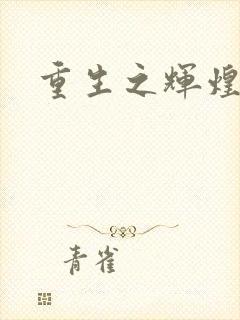 重生之輝煌
青雀